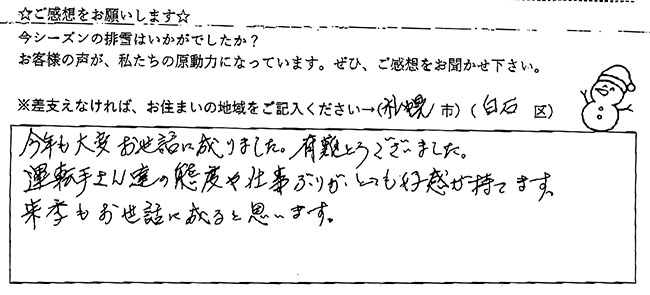 ☆ご感想をお願いします☆
今シーズンの排雪はいかがでしたか？
お客様の声が、私たちの原動力になっています。ぜひ、ご感想をお聞かせ下さい。
※差支えなければ、お住まいの地域をご記入ください→(札幌 市) (白石 区)
今年も大変お世話に成りました。有難とうございました。
運転手さん達の態度や仕事ぶりが、とても好感が持てます。
来季もお世話に成ると思います。